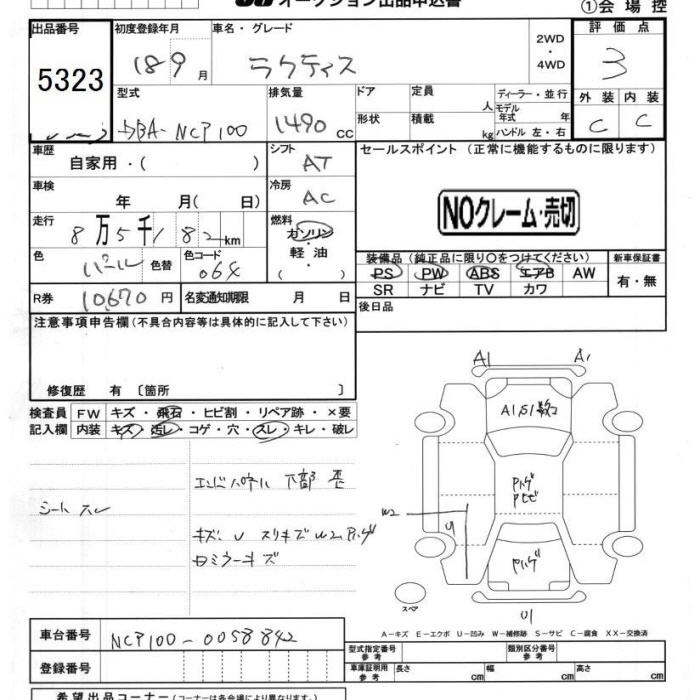 オークション出品申込書
①会場控
出品番号 初度登録年月 車名・グレード 2WD・4WD 評価点
5323 18 9月 ラクティス 3
型式 排気量 ドア 定員 人 ディーラー・並行 外装 内装
DBA-NCP100 1490cc 形状 積載 kg モデル年式 年 ハンドル 左・右 C C
車歴 シフト セールスポイント (正常に機能するものに限ります)
自家用・( ) AT
車検 冷房
年 月( 日) AC NOクレーム・売切
走行 燃料
8万5千182km ガソリン
色 色替 色コード 軽油 装備品 (純正品に限り○をつけてください) 新車保証書
パール 064 ・( ) PS PW ABS エアB AW 有・無
SR ナビ TV カワ
R券 10,670円 名変通知期限 月 日 後日品
注意事項申告欄 (不具合内容等は具体的に記入して下さい)
修復歴 有 〔箇所 〕
A1 A1
検査員 FW キズ・飛石・ヒビ割・リペア跡・×要
記入欄 内装 キズ・汚レ・コゲ・穴・スレ・キレ・破レ
A1 S1 数コ
エンドパネル下部 歪
シートスレ
Pハゲ
Pヒビ
W2 U
キズ、U スリキズ W2 Pハゲ
ロミラーキズ
Pハゲ
スペア
U1
A−キズ E−エクボ U−凹み W−補修跡 S−サビ C−腐食 XX−交換済
車台番号 NCP100-0058842
型式指定番号 参考 類別区分番号 参考
登録番号 車庫証明用 参考 長さ cm 幅 cm 高さ cm
希望出品コーナー (コーナーは各会場により異なります。)